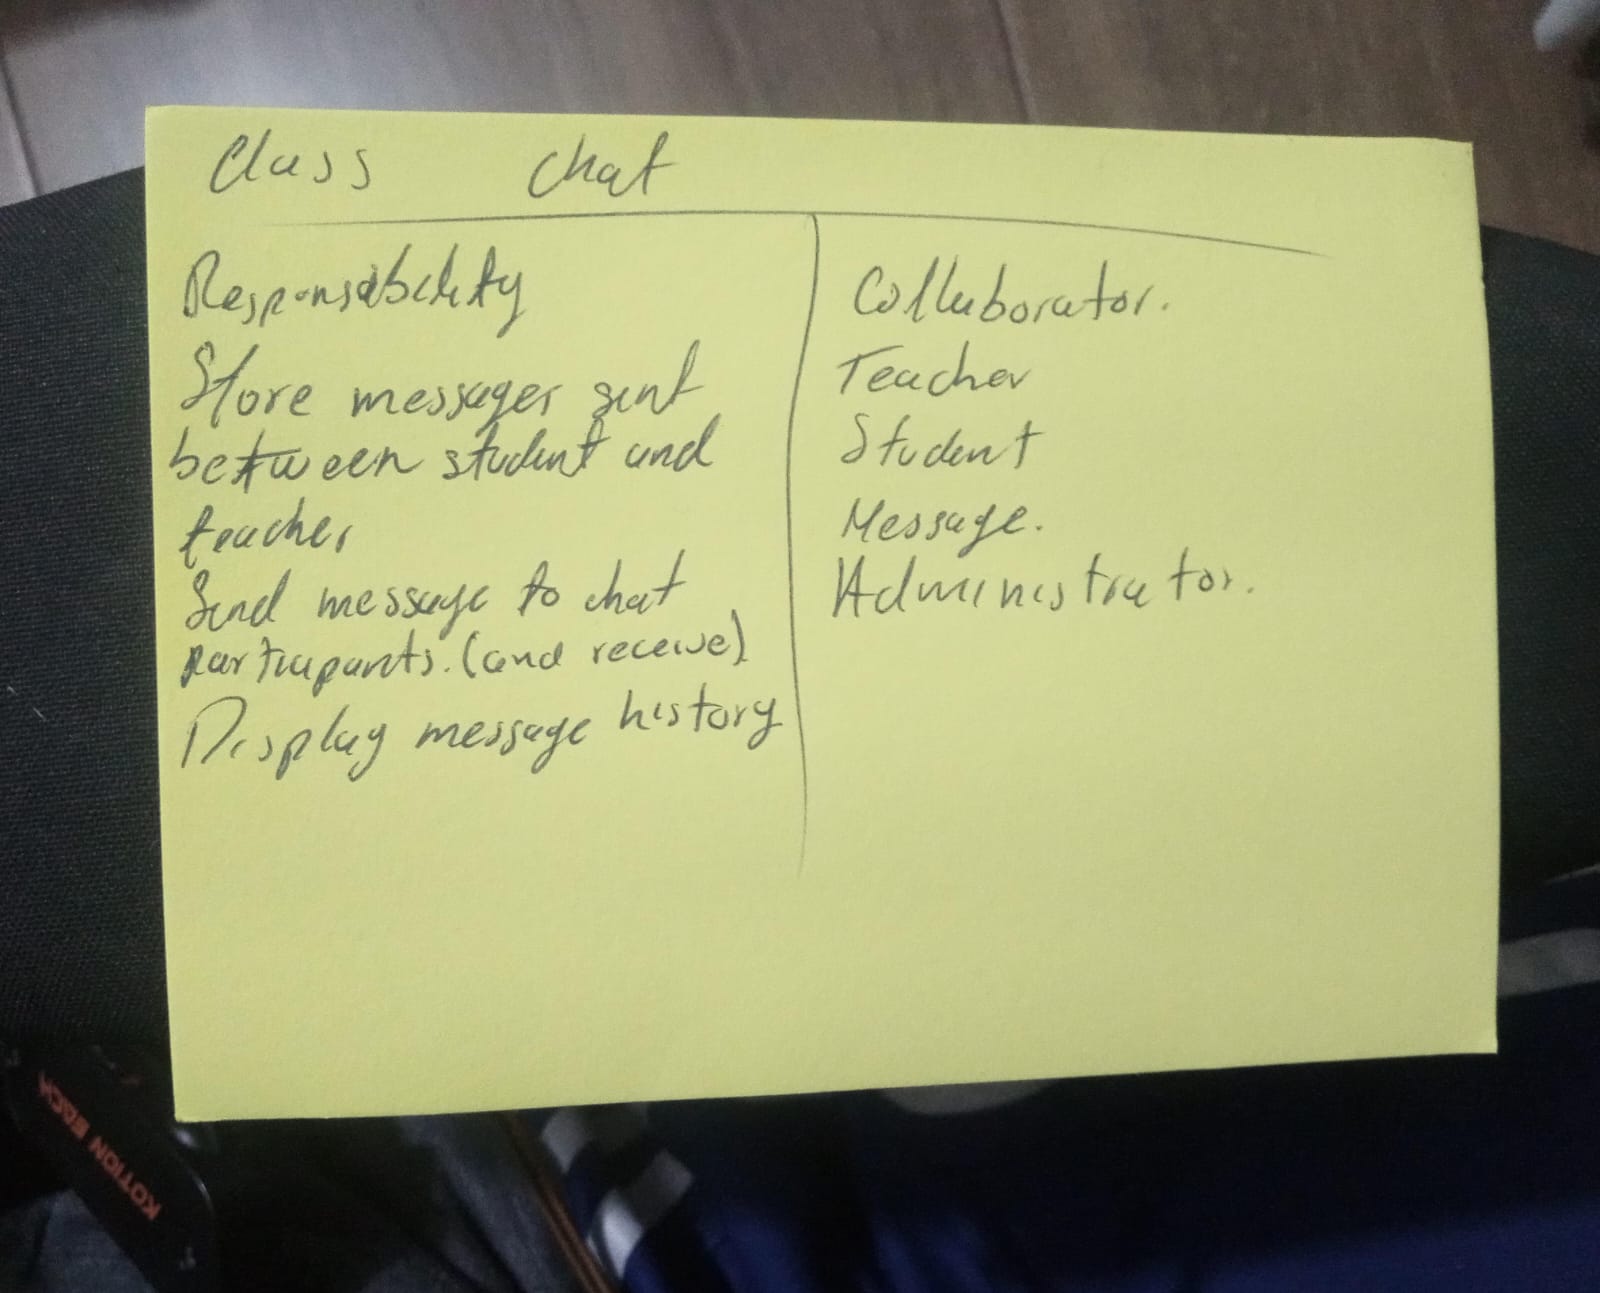 Class chat
Responsability
Store messages sent
between student and
teacher
Send message to chat
participants. (and receive)
Display message history
Collaborator.
Teacher
Student
Message.
Administrator.
KOTION EACH